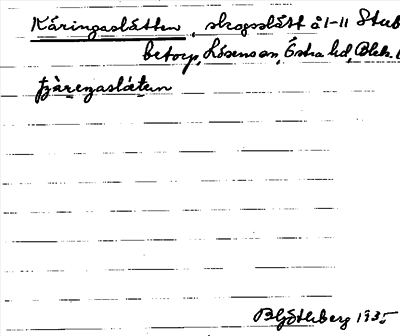 Käringaslätten, skogsslått å 1-11 Stub
betorp, Lösens sn, Östra hd, Blek. l
tjä̀reŋaslä́tǝn
1935